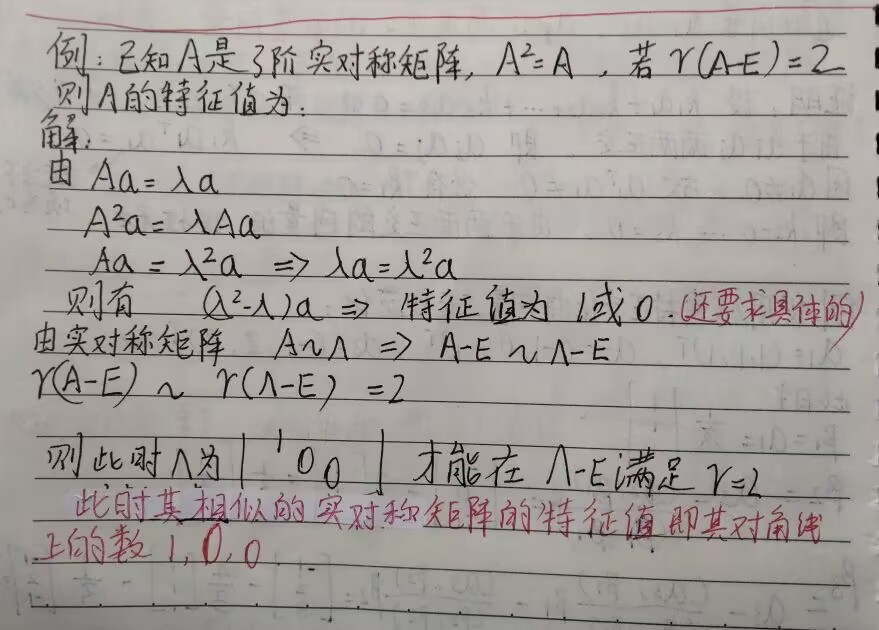 例：已知A是3阶实对称矩阵, A²=A , 若 r(A-E)=2
则A的特征值为:
解:
由 Aa=λa
A²a=λAa
Aa=λ²a ⇒ λa=λ²a
则有 (λ²-λ)a ⇒ 特征值为 1或0.(还要求具体的)
由实对称矩阵 A~Λ ⇒ A-E~Λ-E
r(A-E) ~ r(Λ-E) =2
则此时Λ为 | 1 0 0 | 才能在 Λ-E满足 r=2
此时其相似的实对称矩阵的特征值即其对角线
上的数 1, 0, 0